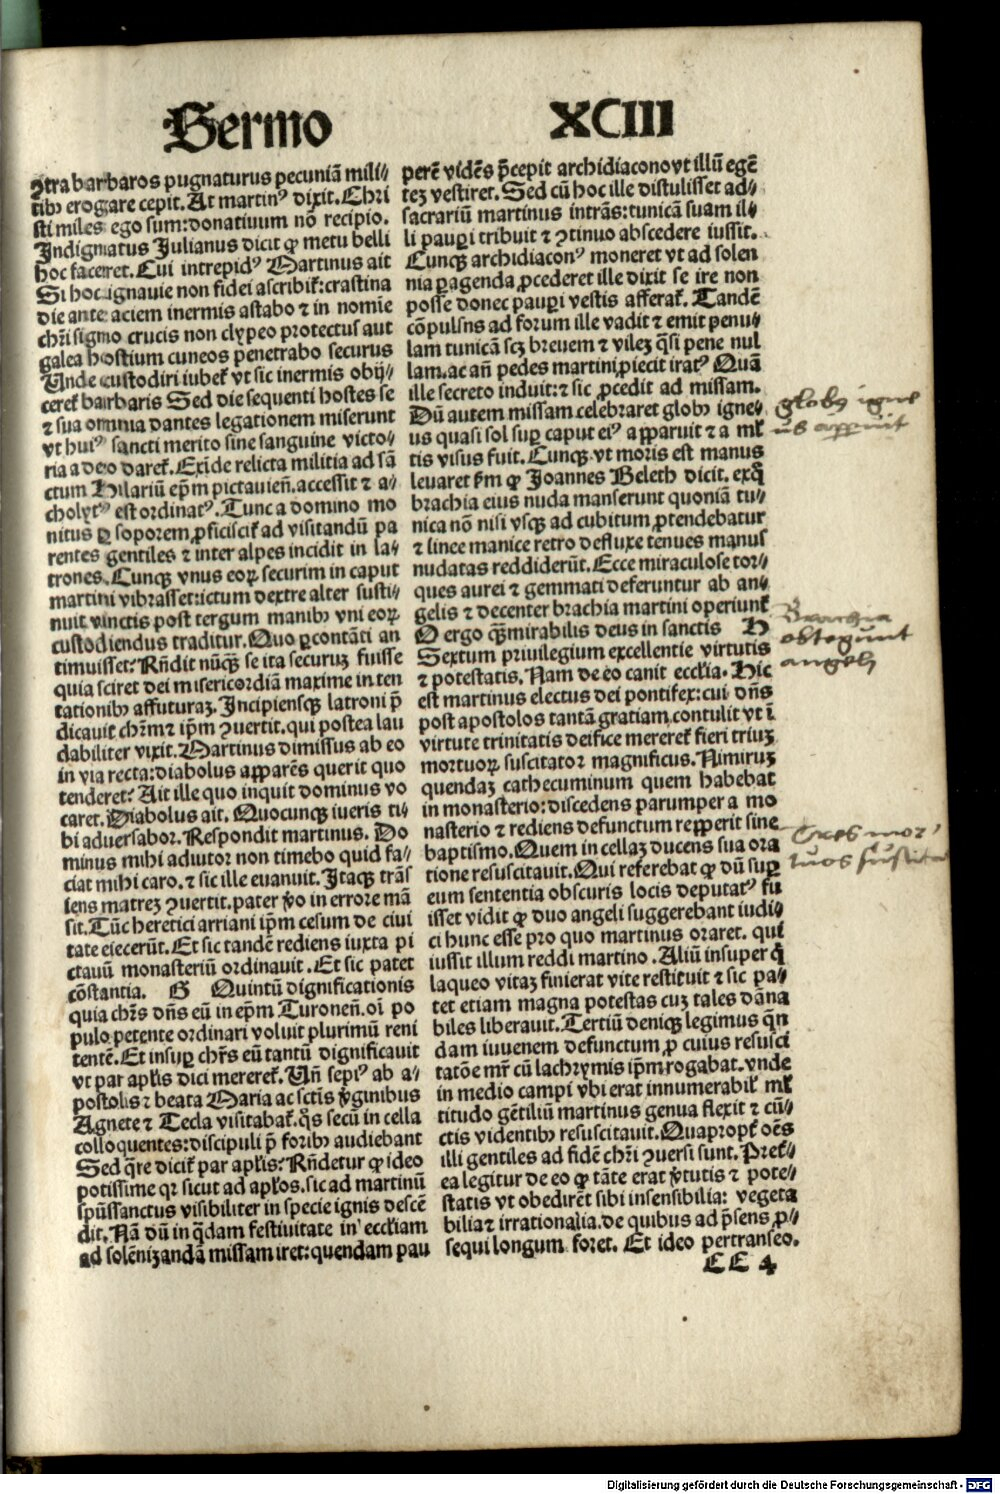 Sermo XCIII
ↄtra barbaros pugnaturus pecuniā mili⸗
tibꝫ erogare cepit. At martinꝰ dixit. Chri
sti miles ego sum: donatiuum nō recipio.
Indignatus Julianus dicit ꝙ metu belli
hoc faceret. Cui intrepidꝰ Martinus ait
Si hoc ignauie non fidei ascribit᷑: crastina
die ante aciem inermis astabo ⁊ in nomīe
chr̄i signo crucis non clypeo protectus aut
galea hostium cuneos penetrabo securus
Unde custodiri iubet᷑ vt sic inermis obij⸗
ceret᷑ barbaris Sed die sequenti hostes se
⁊ sua omnia dantes legationem miserunt
vt huiꝰ sancti merito sine sanguine victo⸗
ria a deo daret᷑. Exīde relicta militia ad sā
ctum Hilariū ep̄m pictauieñ. accessit ⁊ a⸗
cholytꝰ est ordinatꝰ. Tunc a domino mo
nitus ꝑ soporem ꝓficiscit᷑ ad visitandū pa
rentes gentiles ⁊ inter alpes incidit in la⸗
trones. Cunqꝫ vnus eoꝝ securim in caput
martini vibrasset: ictum dextre alter susti⸗
nuit. vinctis post tergum manibꝫ vni eoꝝ
custodiendus traditur. Quo ꝑcontāti an
timuisset: Rn̄dit nūqꝫ se ita securuꝫ fuisse
quia sciret dei misericordiā maxime in ten
tationibꝫ affuturaꝫ. Incipiensqꝫ latroni p̄
dicauit chr̄m ⁊ ip̄m ↄuertit. qui postea lau
dabiliter vixit. Martinus dimissus ab eo
in via recta: diabolus apparēs querit quo
tenderet: Ait ille quo inquit dominus vo
caret. Diabolus ait. Quocunqꝫ iueris ti⸗
bi aduersabor. Respondit martinus. Do
minus mihi adiutor non timebo quid fa⸗
ciat mihi caro. ⁊ sic ille euanuit. Itaqꝫ trās
iens matreꝫ ↄuertit. pater ṽo in errore mā
sit. Tūc heretici arriani ip̄m cesum de ciui
tate eiecerūt. Et sic tandē rediens iuxta pi
ctauū monasteriū ordinauit. Et sic patet
cōstantia. G Quintū dignificationis
quia chr̄s dn̄s eū in ep̄m Turoneñ. oī po
pulo petente ordinari voluit plurimū reni
tentē. Et insuꝑ chr̄s eū tantū dignificauit
vt par apl̄is dici mereret᷑. Un̄ sepiꝰ ab a⸗
postolis ⁊ beata Maria ac sctīs v̄ginibus
Agnete ⁊ Tecla visitabat᷑. q̄s secū in cella
colloquentes: discipuli p̄ foribꝫ audiebant
Sed q̄re dicit᷑ par apl̄is: Rn̄detur ꝙ ideo
potissime qr sicut ad apl̄os. sic ad martinū
spūssanctus visibiliter in specie ignis descē
dit. Nā dū in q̄dam festiuitate in eccl̄iam
ad solēnizandā missam iret: quendam pau
perē vidēs p̄cepit archidiacono vt illū egē
teꝫ vestiret. Sed cū hoc ille distulisset ad⸗
sacrariū martinus intrās: tunicā suam il⸗
li pauꝑi tribuit ⁊ ↄtinuo abscedere iussit.
Cunqꝫ archidiaconꝰ moneret vt ad solen
nia ꝑagenda ꝓcederet ille dixit se ire non
posse donec pauꝑi vestis afferat᷑. Tandē
cōpulsus ad forum ille vadit ⁊ emit penu⸗
lam tunicā scꝫ breuem ⁊ vileꝫ q̄si pene nul
lam. ac an̄ pedes martini ꝓiecit iratꝰ Quā
ille secreto induit: ⁊ sic ꝓcedit ad missam.
Dū autem missam celebraret globꝰ igne⸗
us quasi sol suꝑ caput eiꝰ apparuit ⁊ a ml̄
tis visus fuit. Cunqꝫ vt moris est manus
leuaret ꝙ Joannes Beleth dicit. ex q̄
brachia eius nuda manserunt quoniā tu⸗
nica nō nisi vsqꝫ ad cubitum ꝓtendebatur
⁊ linee manice retro defluxe tenues manus
nudatas reddiderūt. Ecce miraculose tor⸗
ques aurei ⁊ gemmati deferuntur ab an⸗
gelis ⁊ decenter brachia martini operiunt᷑
O ergo qꝫ mirabilis deus in sanctis H
Sextum priuilegium excellentie virtutis
⁊ potestatis. Nam de eo canit eccl̄ia. Hic
est martinus electus dei pontifex: cui dn̄s
post apostolos tantā gratiam contulit vt ī
virtute trinitatis deifice mereret᷑ fieri triuꝫ
mortuoꝝ suscitator magnificus. Nimiruꝫ
quendaꝫ cathecuminum quem habebat
in monasterio: discedens parumper a mo
nasterio ⁊ rediens defunctum repperit sine
baptismo. Quem in cellaꝫ ducens sua ora
tione resuscitauit. Qui referebat ꝙ dū suꝑ
eum sententia obscuris locis deputatꝰ fu
isset vidit ꝙ duo angeli suggerebant iudi⸗
ci hunc esse pro quo martinus oraret. qui
iussit illum reddi martino. Aliū insuper q̄
laqueo vitaꝫ finierat vite restituit ⁊ sic pa⸗
tet etiam magna potestas cuꝫ tales dāna
biles liberauit. Tertiū deniqꝫ legimus q̄n
dam iuuenem defunctum ꝓ cuius resusci
tatōe mr̄ cū lachrymis ip̄m rogabat. vnde
in medio campi vbi erat innumerabil᷑ ml̄
titudo gētiliū martinus genua flexit ⁊ cū⸗
ctis videntibꝫ resuscitauit. Quapropt᷑ oēs
illi gentiles ad fidē chr̄i ↄuersi sunt. Pret᷑⸗
ea legitur de eo ꝙ tāte erat v̄tutis ⁊ pote⸗
statis vt obedirēt sibi insensibilia: vegeta
bilia ⁊ irrationalia. de quibus ad p̄sens ꝓ⸗
sequi longum foret. Et ideo pertranseo.
EE 4
globꝰ igne
us apparuit
Brachia
obtegunt
angeli
Tres mor
tuos suscita
Digitalisierung gefördert durch die Deutsche Forschungsgemeinschaft - DFG